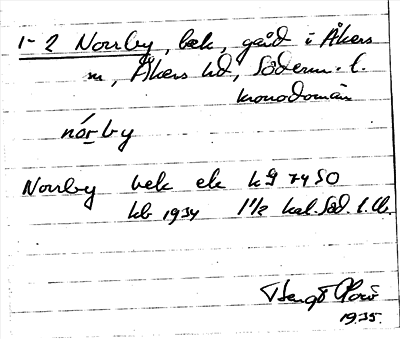 1-2 Norrby, bek, gård i Åkers
sn, Åkers hd, Söderm. l.
kronodomän
nó̱rby
Norrby bek ek kg 7450
kb 1934 1/2 kal. Söd. l.
Bengt
1935.